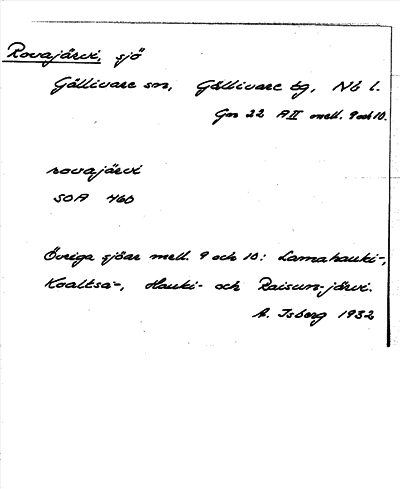 Rovajärvi, sjö
Gällivare sn, Gällivare tg, Nb l.
Gm 22 AII mell. 9 och 10.
rovajärvi
SOA 460
Övriga sjöar mell. 9 och 10: Lamahauki-,
Koaltsa-, Hauki- och Raisun-järvi.
A. Isberg 1932